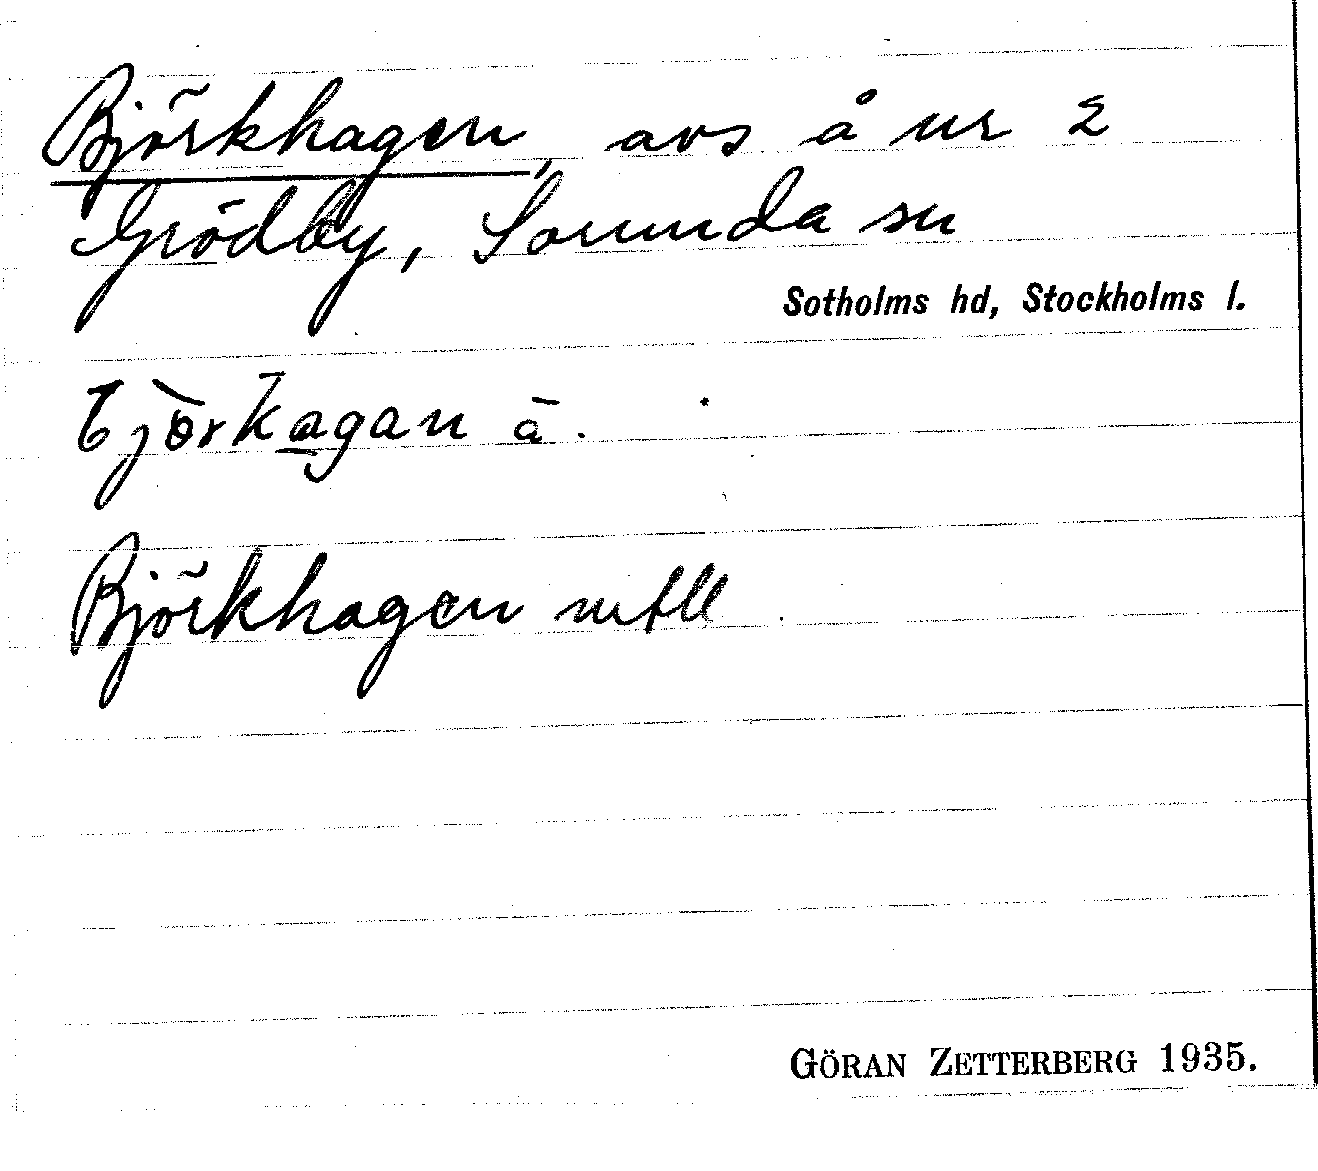 Björkhagen, avs å nr 2
Grödby, Sorunda sn
Sotholms hd, Stockholms l.
bjö̀rk̄a̲gan ā.
Björkhagen mtll
GÖRAN ZETTERBERG 1935.